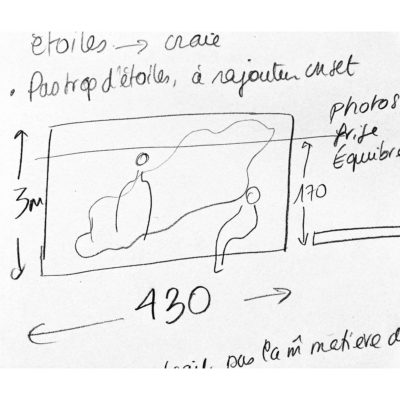 étoiles → craie
• Pas trop d'étoiles, à rajouter en set
Photos
Équilibre
3m
170
430
pas la m̂ matière d